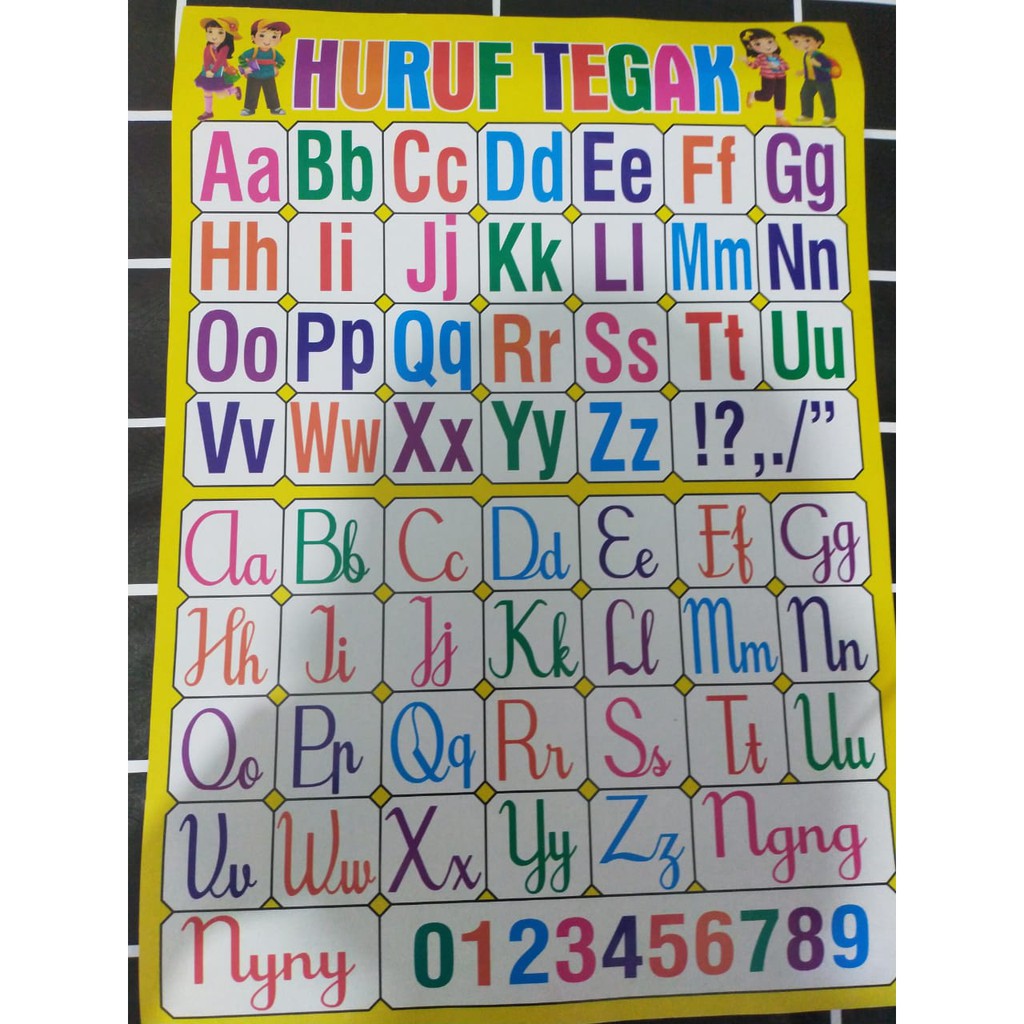 HURUF TEGAK
Aa Bb Cc Dd Ee Ff Gg
Hh Ii Jj Kk Ll Mm Nn
Oo Pp Qq Rr Ss Tt Uu
Vv Ww Xx Yy Zz !?,./”
Aa Bb Cc Dd Ee Ff Gg
Hh Ii Jj Kk Ll Mm Nn
Oo Pp Qq Rr Ss Tt Uu
Vv Ww Xx Yy Zz Ngng
Nyny 0123456789